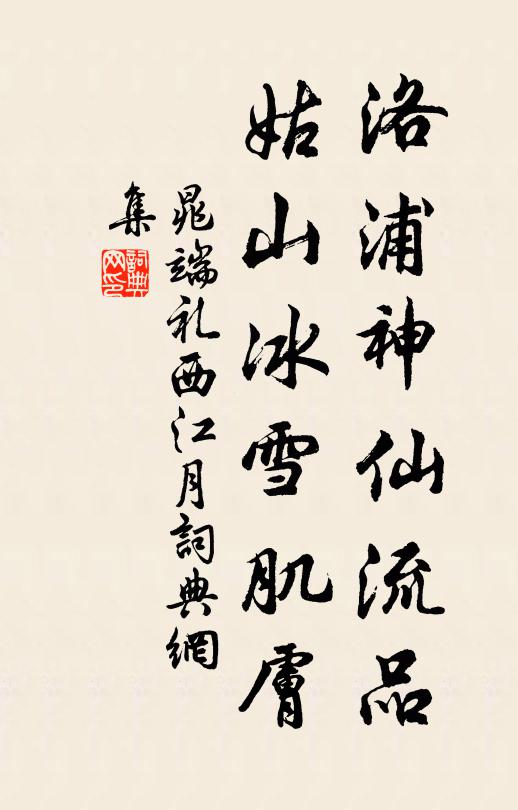 洛浦神仙流品
姑山冰雪肌膚
晁端礼西江月詞典網
集
詞典网印